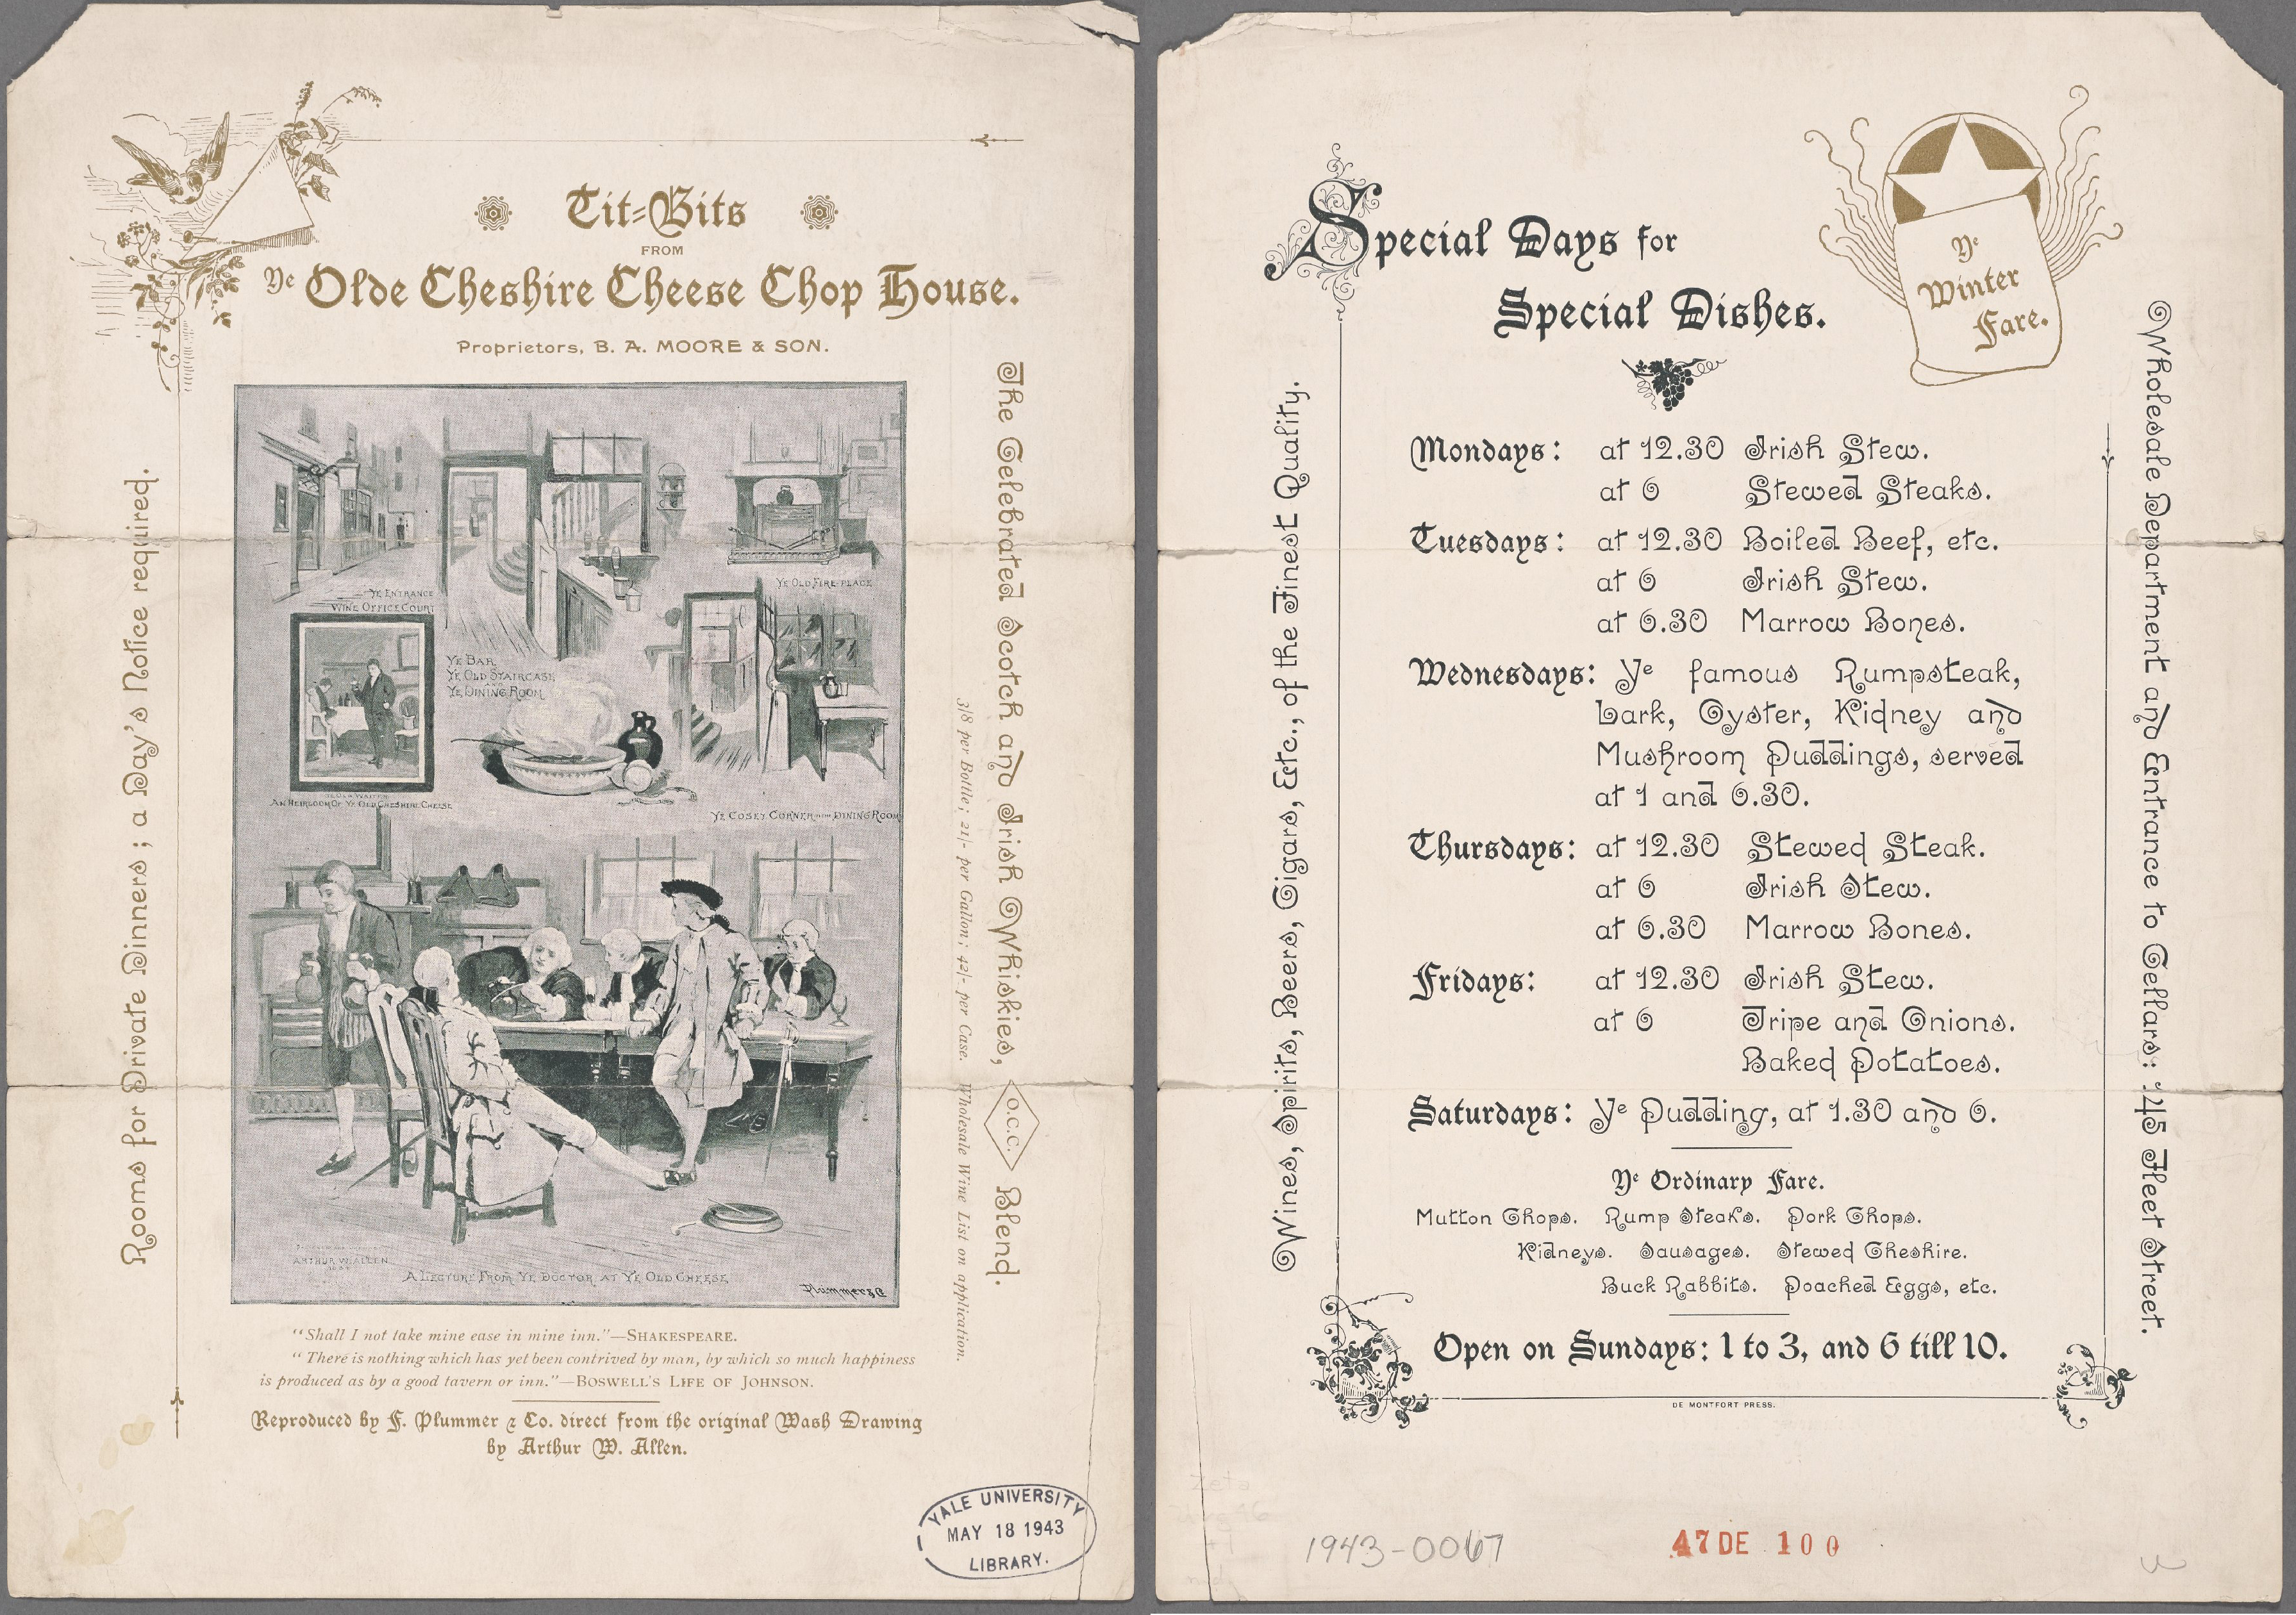 Tit-Bits
FROM
Ye Olde Cheshire Cheese Chop House.
Proprietors, B. A. MOORE & SON.
Rooms for Private Dinners; a Day's Notice required.
YE ENTRANCE
WINE OFFICE COURT
YE OLD FIRE-PLACE
YE BAR
YE OLD STAIRCASE
AND
YE DINING ROOM
YE OLD WAITER
AN HEIRLOOM OF YE OLD CHESHIRE CHEESE
YE COSEY CORNER DINING ROOM
ARTHUR W. ALLEN
A LECTURE FROM YE DOCTOR AT YE OLD CHEESE
Plummer & Co
The Celebrated Scotch and Irish Whiskies, O.C.C. Blend.
3/8 per Bottle; 21/- per Gallon; 42/- per Case. Wholesale Wine List on application.
"Shall I not take mine ease in mine inn."—SHAKESPEARE.
"There is nothing which has yet been contrived by man, by which so much happiness
is produced as by a good tavern or inn."—BOSWELL'S LIFE OF JOHNSON.
Reproduced by F. Plummer & Co. direct from the original Wash Drawing
by Arthur W. Allen.
YALE UNIVERSITY
MAY 18 1943
LIBRARY.
Special Days for
Special Dishes.
Ye
Winter
Fare.
Wines, Spirits, Beers, Cigars, Etc., of the Finest Quality.
Mondays: at 12.30 Irish Stew.
at 6 Stewed Steaks.
Tuesdays: at 12.30 Boiled Beef, etc.
at 6 Irish Stew.
at 6.30 Marrow Bones.
Wednesdays: Ye famous Rumpsteak,
Lark, Oyster, Kidney and
Mushroom Puddings, served
at 1 and 6.30.
Thursdays: at 12.30 Stewed Steak.
at 6 Irish Stew.
at 6.30 Marrow Bones.
Fridays: at 12.30 Irish Stew.
at 6 Tripe and Onions.
Baked Potatoes.
Saturdays: Ye Pudding, at 1.30 and 6.
Ye Ordinary Fare.
Mutton Chops. Rump Steaks. Pork Chops.
Kidneys. Sausages. Stewed Cheshire.
Buck Rabbits. Poached Eggs, etc.
Open on Sundays: 1 to 3, and 6 till 10.
DE MONTFORT PRESS.
Wholesale Department and Entrance to Cellars: 145 Fleet Street.
1943-0067
47 DE 100